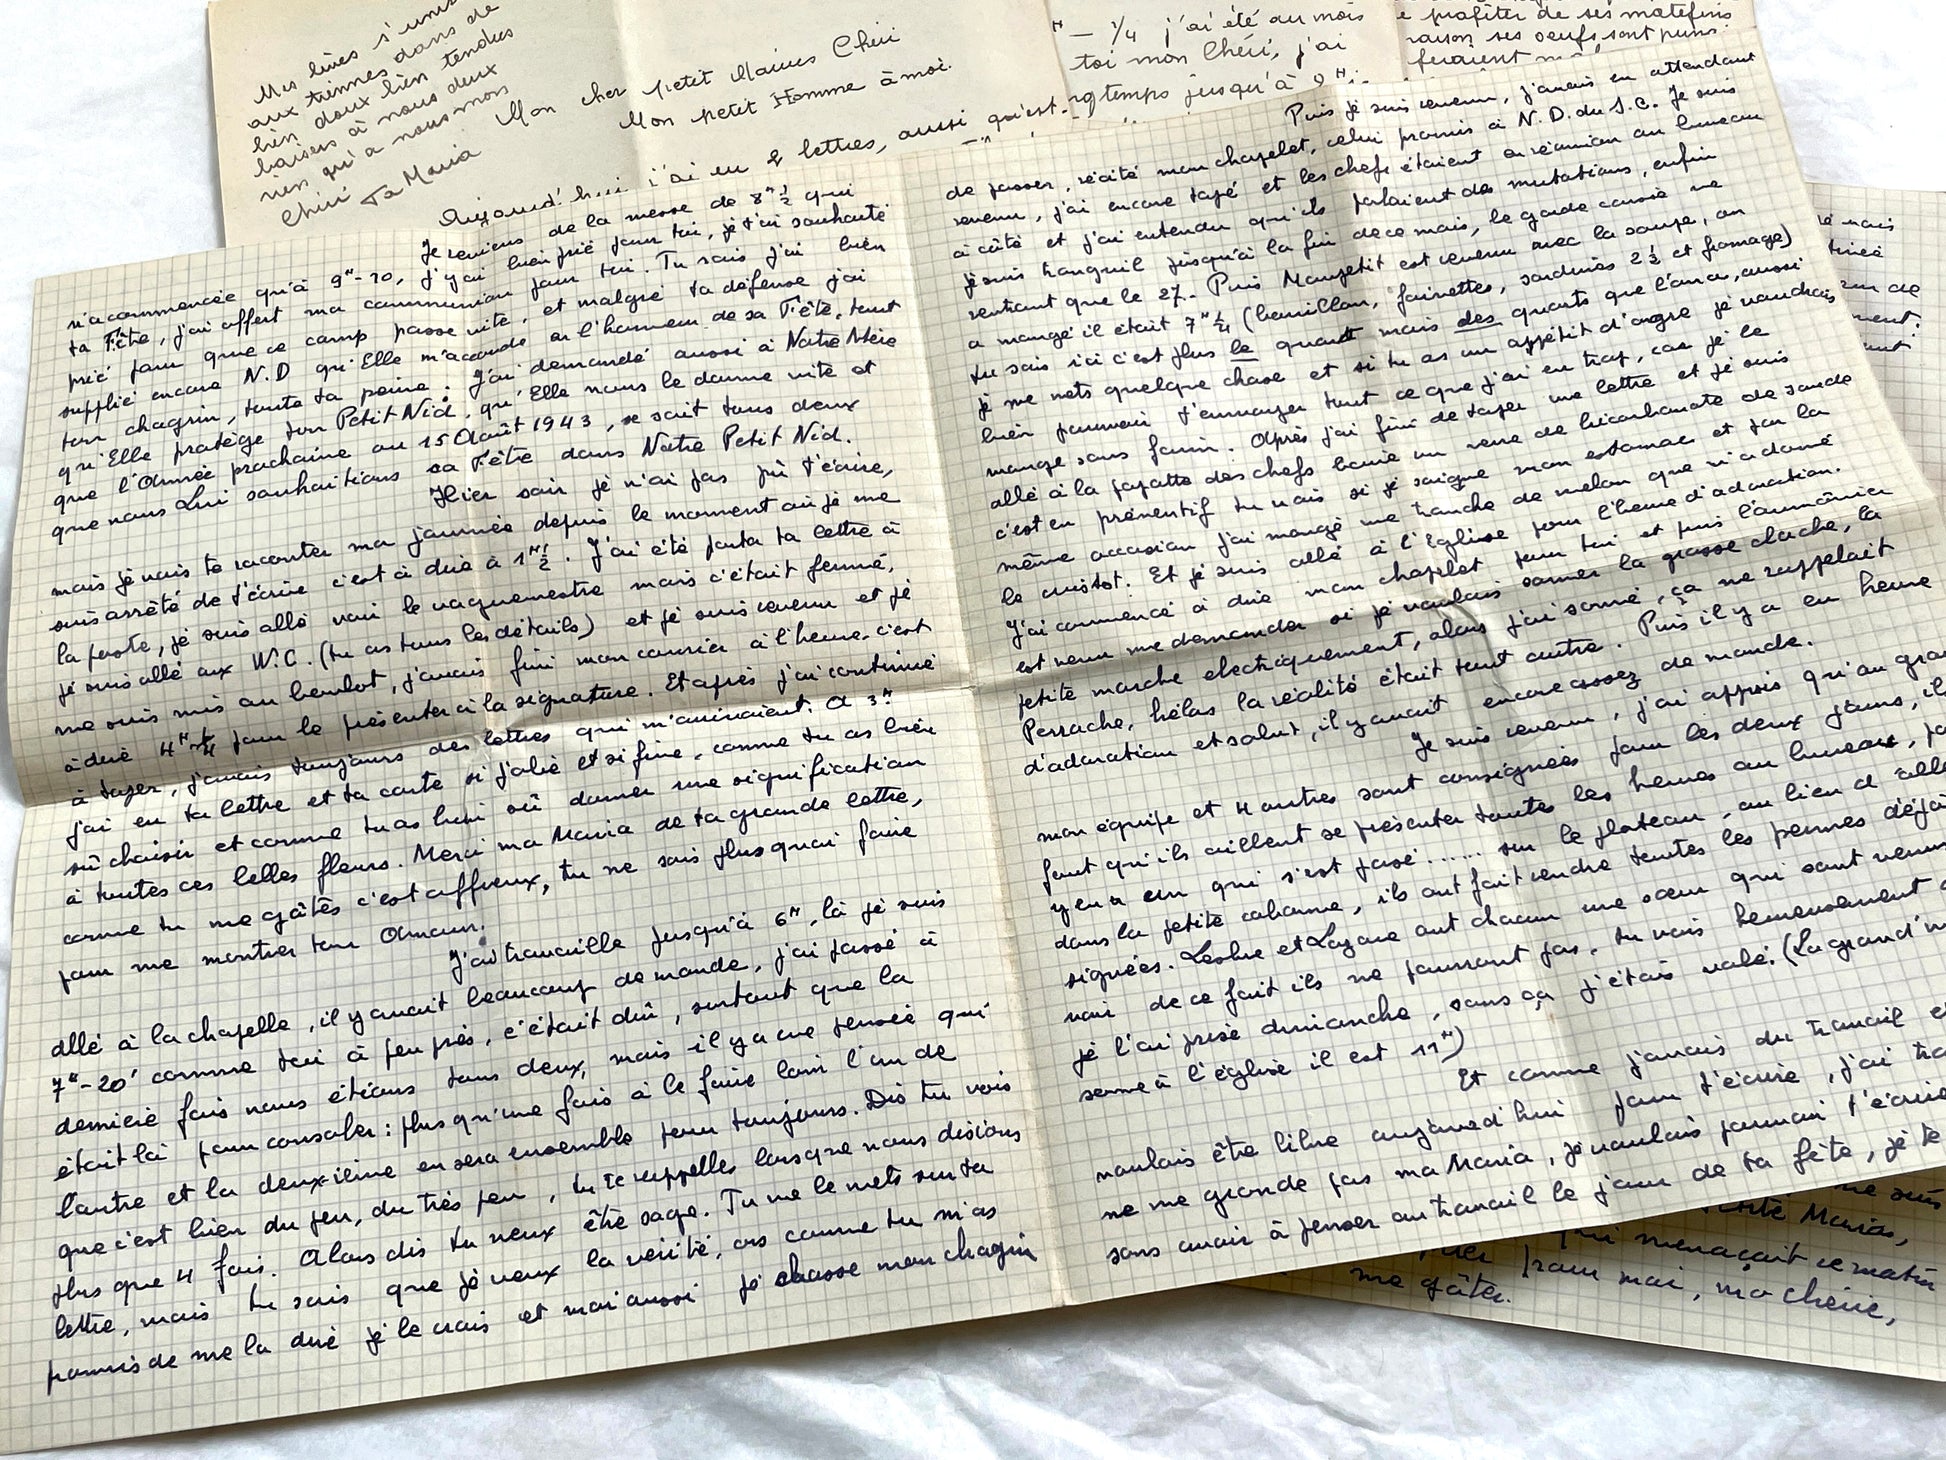 Mes lèvres s'unissent
aux tiennes dans de
bien doux bien tendres
baisers à nous deux
rien qu'à nous mon
Chéri Ta Maria
Mon cher Petit Marius Chéri
Mon petit Homme à moi.
Aujourd'hui j'ai eu 2 lettres, aussi qu'est
H — 1/4 j'ai été au mois
toi mon Chéri, j'ai
longtemps jusqu'à 9H
profiter de ses matefins
raison ses oeufs sont
feraient
Je reviens de la messe de 8H 1/2 qui
n'a commencée qu'à 9H-10, j'y ai bien prié pour toi, je t'ai souhaité
ta Fête, j'ai offert ma communion pour toi. Tu sais j'ai bien
prié pour que ce camp passe vite, et malgré ta défense j'ai
supplié encore N.D qu'Elle m'accorde en l'honneur de sa Fête, tout
ton chagrin, toute ta peine. J'ai demandé aussi à Notre Mère
qu'Elle protège ton Petit Nid, qu'Elle nous le donne vite et
que l'Année prochaine au 15 Août 1943, ce soit tous deux
que nous Lui souhaitions sa Fête dans Notre Petit Nid.
Hier soir je n'ai pas pû t'écrire,
mais je vais te raconter ma journée depuis le moment où je me
suis arrêté de t'écrire c'est à dire à 1H 1/2. J'ai été porter ta lettre à
la poste, je suis allé voir le vaguemestre mais c'était fermé,
je suis allé aux W.C. (tu as tous les détails) et je suis revenu et je
me suis mis au boulot, j'avais fini mon courrier à l'heure, c'est
à dire 4H 1/4 pour le présenter à la signature. Et après j'ai continué
à taper, j'avais toujours des lettres qui m'arrivaient. A 3H
j'ai eu ta lettre et ta carte si jolie et si fine, comme tu as bien
sû choisir et comme tu as bien sû donner une signification
à toutes ces belles fleurs. Merci ma Maria de ta grande lettre,
comme tu me gâtes c'est affreux, tu ne sais plus quoi faire
pour me montrer ton Amour.
J'ai travaillé jusqu'à 6H, là je suis
allé à la chapelle, il y avait beaucoup de monde, j'ai passé à
7H-20' comme toi à peu près, c'était dûr, surtout que la
dernière fois nous étions tous deux, mais il y a une pensée qui
était là pour consoler : plus qu'une fois à le faire loin l'un de
l'autre et la deuxième on sera ensemble pour toujours. Dis tu vois
que c'est bien du peu, du très peu, tu te rappelles lorsque nous disions
plus que 4 fois. Alors dis tu veux être sage. Tu me le mets sur ta
lettre, mais tu sais que je veux la vérité, or comme tu m'as
promis de me la dire je le crois et moi aussi je chasse mon chagrin
Puis je suis revenu, j'avais en attendant
de passer, récité mon chapelet, celui promis à N.D. du S.C. Je suis
revenu, j'ai encore tapé et les chefs étaient en réunion au bureau
à côté et j'ai entendu qu'ils parlaient des mutations, enfin
je suis tranquil jusqu'à la fin de ce mois, le garde caisse ne
rentrant que le 27. Puis Maupetit est revenu avec la soupe, on
a mangé il était 7H 1/4 (bouillon, sardines 2 1/2 et fromage)
tu sais ici c'est plus le quart mais des quarts que l'on a, aussi
je me mets quelque chose et si tu as un appétit d'ogre je voudrais
bien pouvoir t'envoyer tout ce que j'ai en trop, car je le
mange sans faim. Après j'ai fini de taper une lettre et je suis
allé à la popotte des chefs boire un verre de bicarbonate de soude
c'est en préventif tu vois si je soigne mon estomac et par la
même occasion j'ai mangé une tranche de melon que m'a donné
le cuistot. Et je suis allé à l'Eglise pour l'heure d'adoration.
J'ai commencé à dire mon chapelet pour toi et puis l'aumônier
est venu me demander si je voulais sonner la grosse cloche, la
petite marche électriquement, alors j'ai sonné, ça me rappelait
Perrache, hélas la réalité était tout autre. Puis il y a eu heure
d'adoration et salut, il y avait encore assez de monde.
Je suis revenu, j'ai appris qu'un
mon équipe et 4 autres sont consignées pour les deux jours,
faut qu'ils aillent se présenter toutes les heures au bureau,
y en a un qui s'est posé...... sur le plateau, au lieu d'aller
dans la petite cabane, ils ont fait rendre toutes les permes déjà
signées. Leslue et Lazare ont chacun une soeur qui sont venues
voir de ce fait ils ne pourront pas, tu vois heureusement
je l'ai prise dimanche, sans ça j'étais volé. (La grand'
sonne à l'église il est 11H)
Et comme j'avais du travail et
voulais être libre aujourd'hui pour t'écrire, j'ai
ne me gronde pas ma Maria, je voulais pouvoir t'écrire
sans avoir à penser au travail le jour de ta fête, je te
Maria,
qui menaçait ce matin
pour moi, ma chérie,
me gâter.